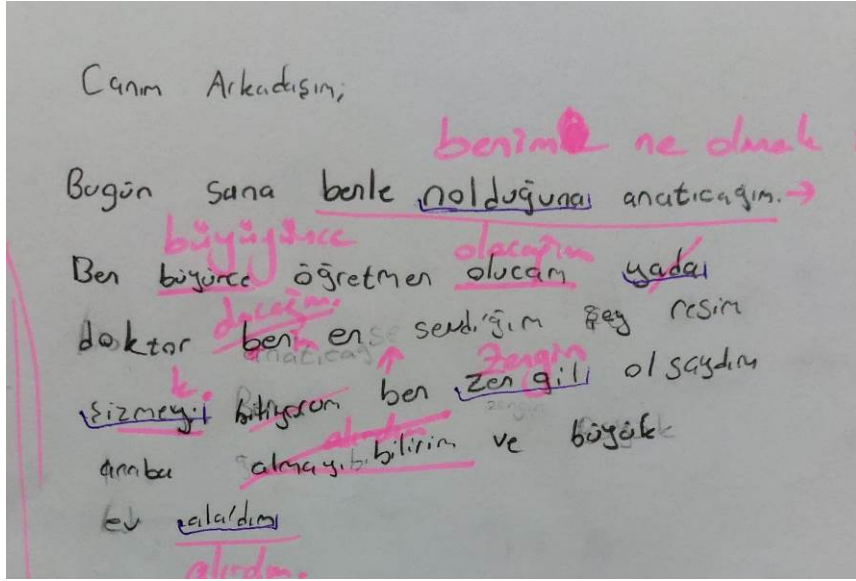 Canım Arkadışım;
benim ne olmak
Bugün sana benle nolduğuna anatıcağım. →
büyüyünce olacağım
Ben büyünce öğretmen olucam yada
doktor beni en sevdiğim şey resim
k. zengin
sizmeyi biliyorum ben zen gil olsaydım
alırdım
araba almayı bilirim ve büyük
ev alaldım
alırdım.